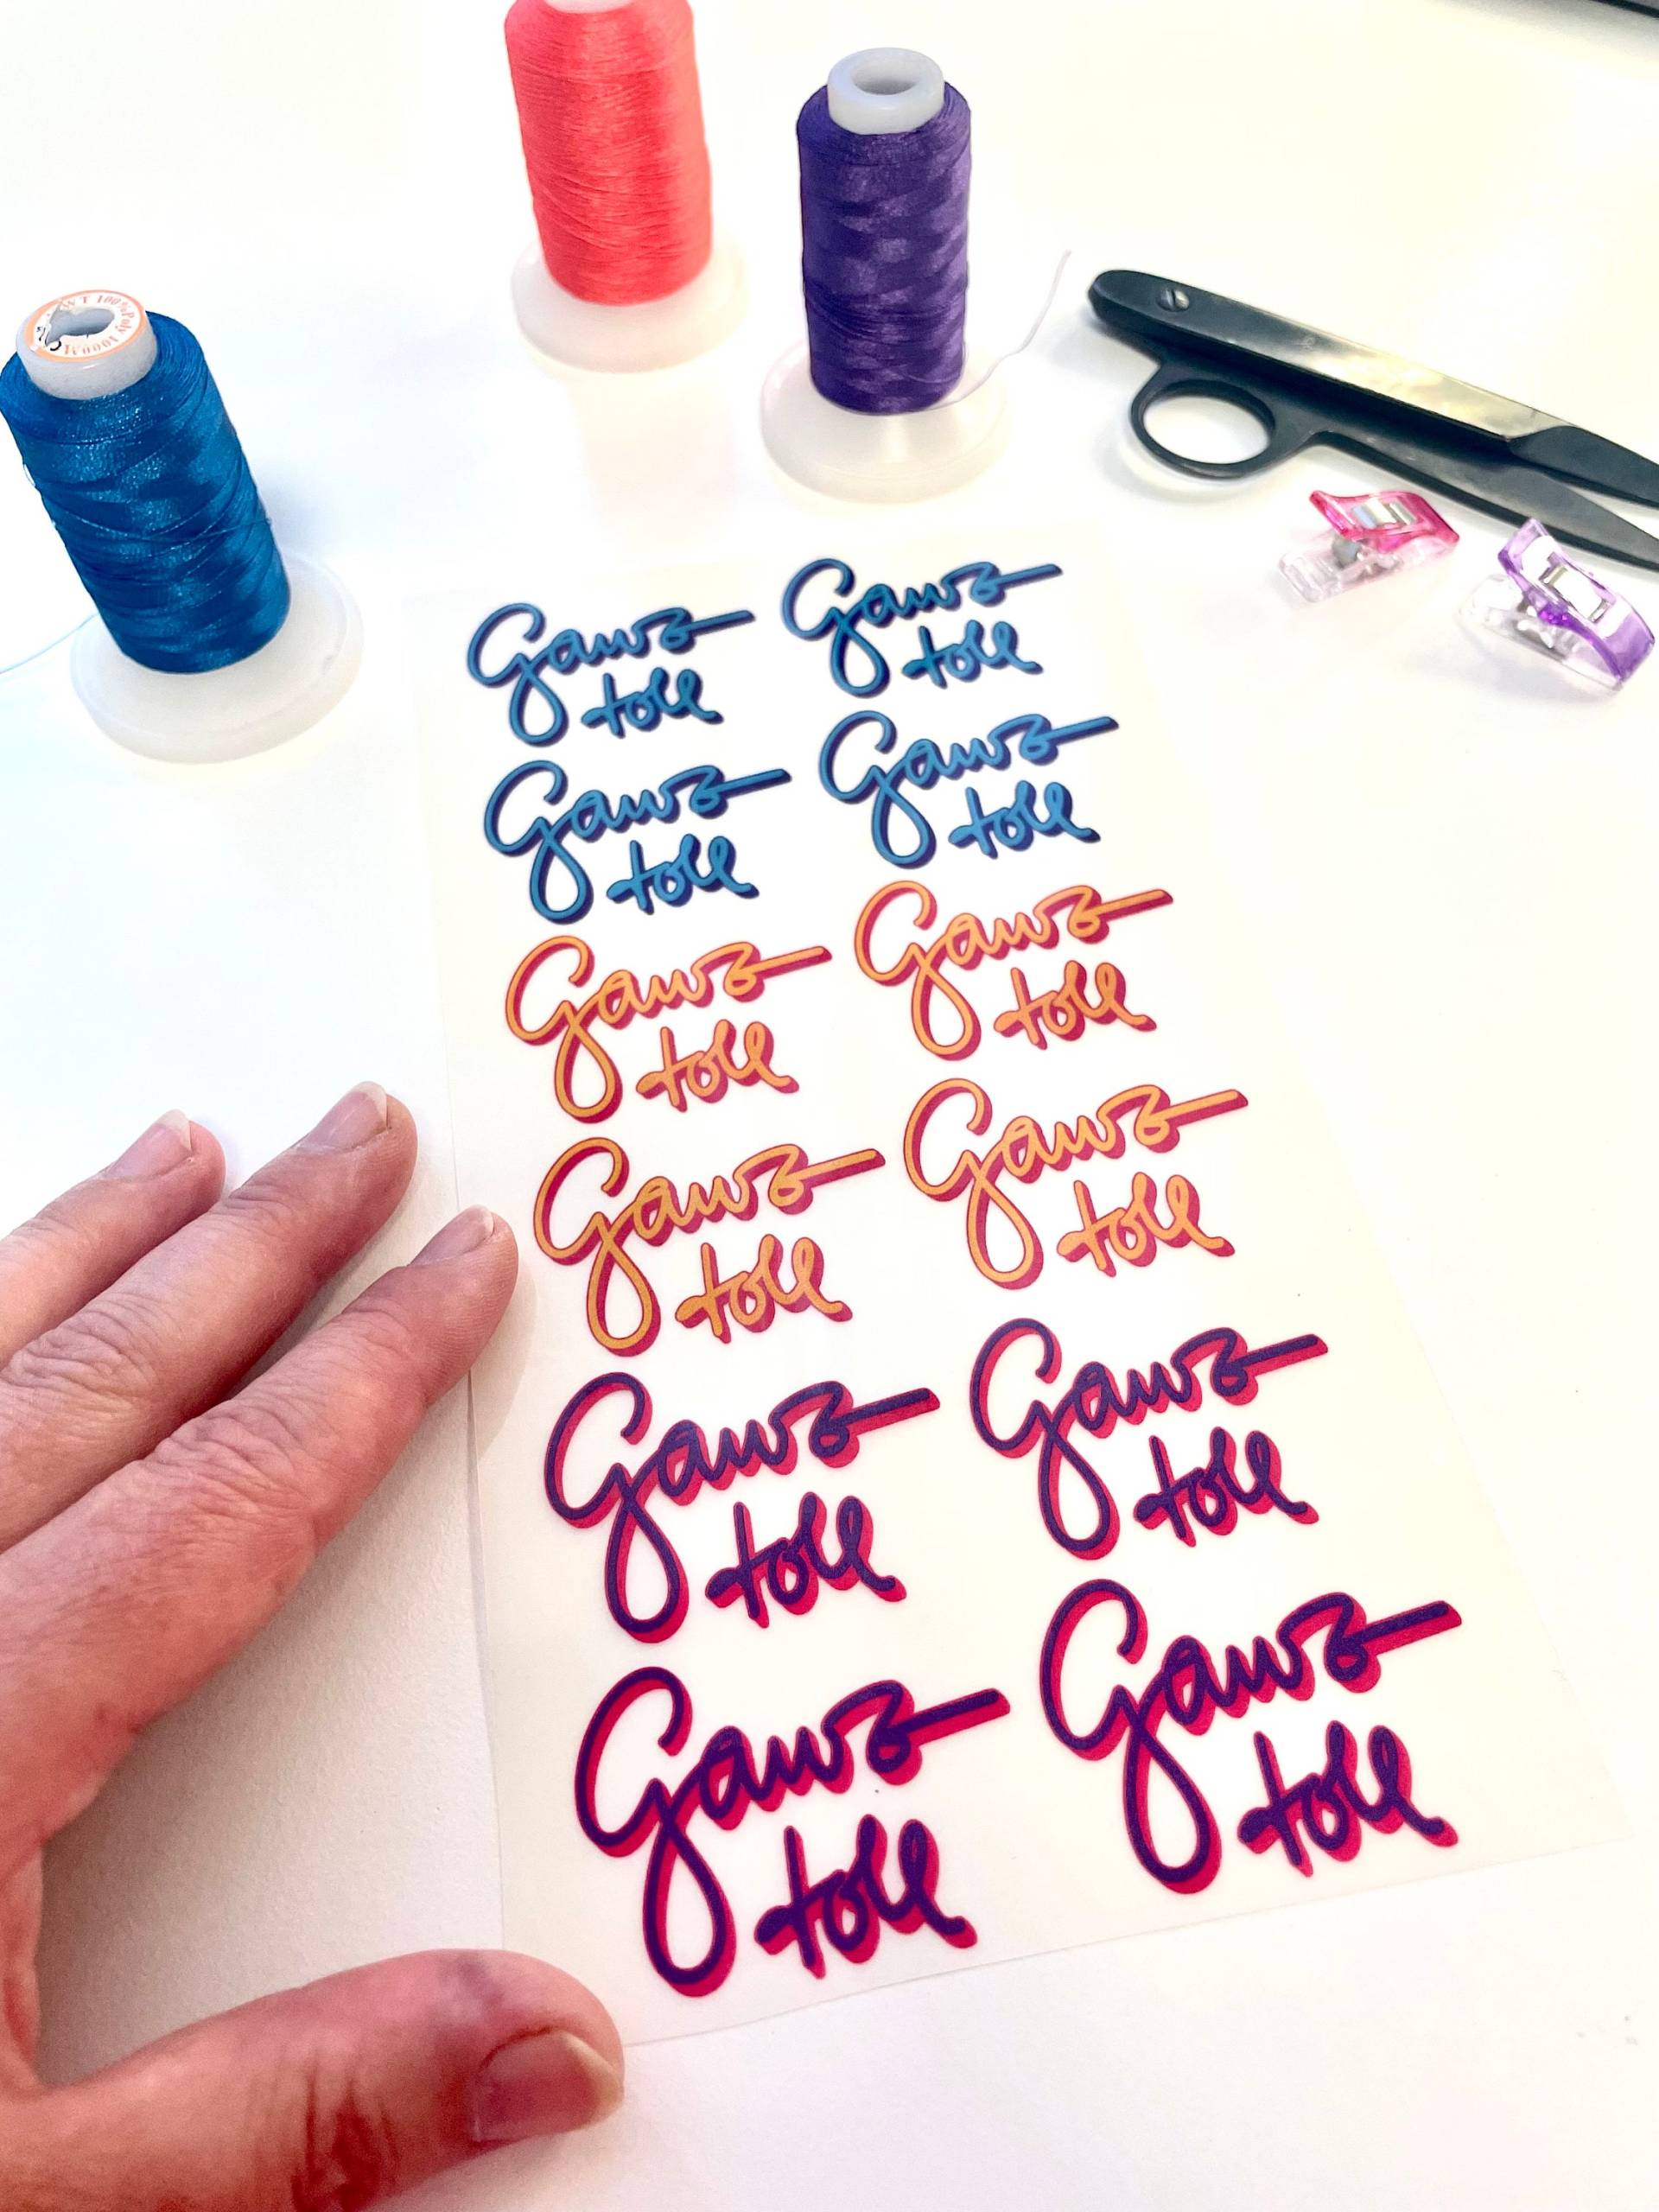 100%Poly 1000M
Ganz
toll
Ganz
toll
Ganz
toll
Ganz
toll
Ganz
toll
Ganz
toll
Ganz
toll
Ganz
toll
Ganz
toll
Ganz
toll
Ganz
toll
Ganz
toll